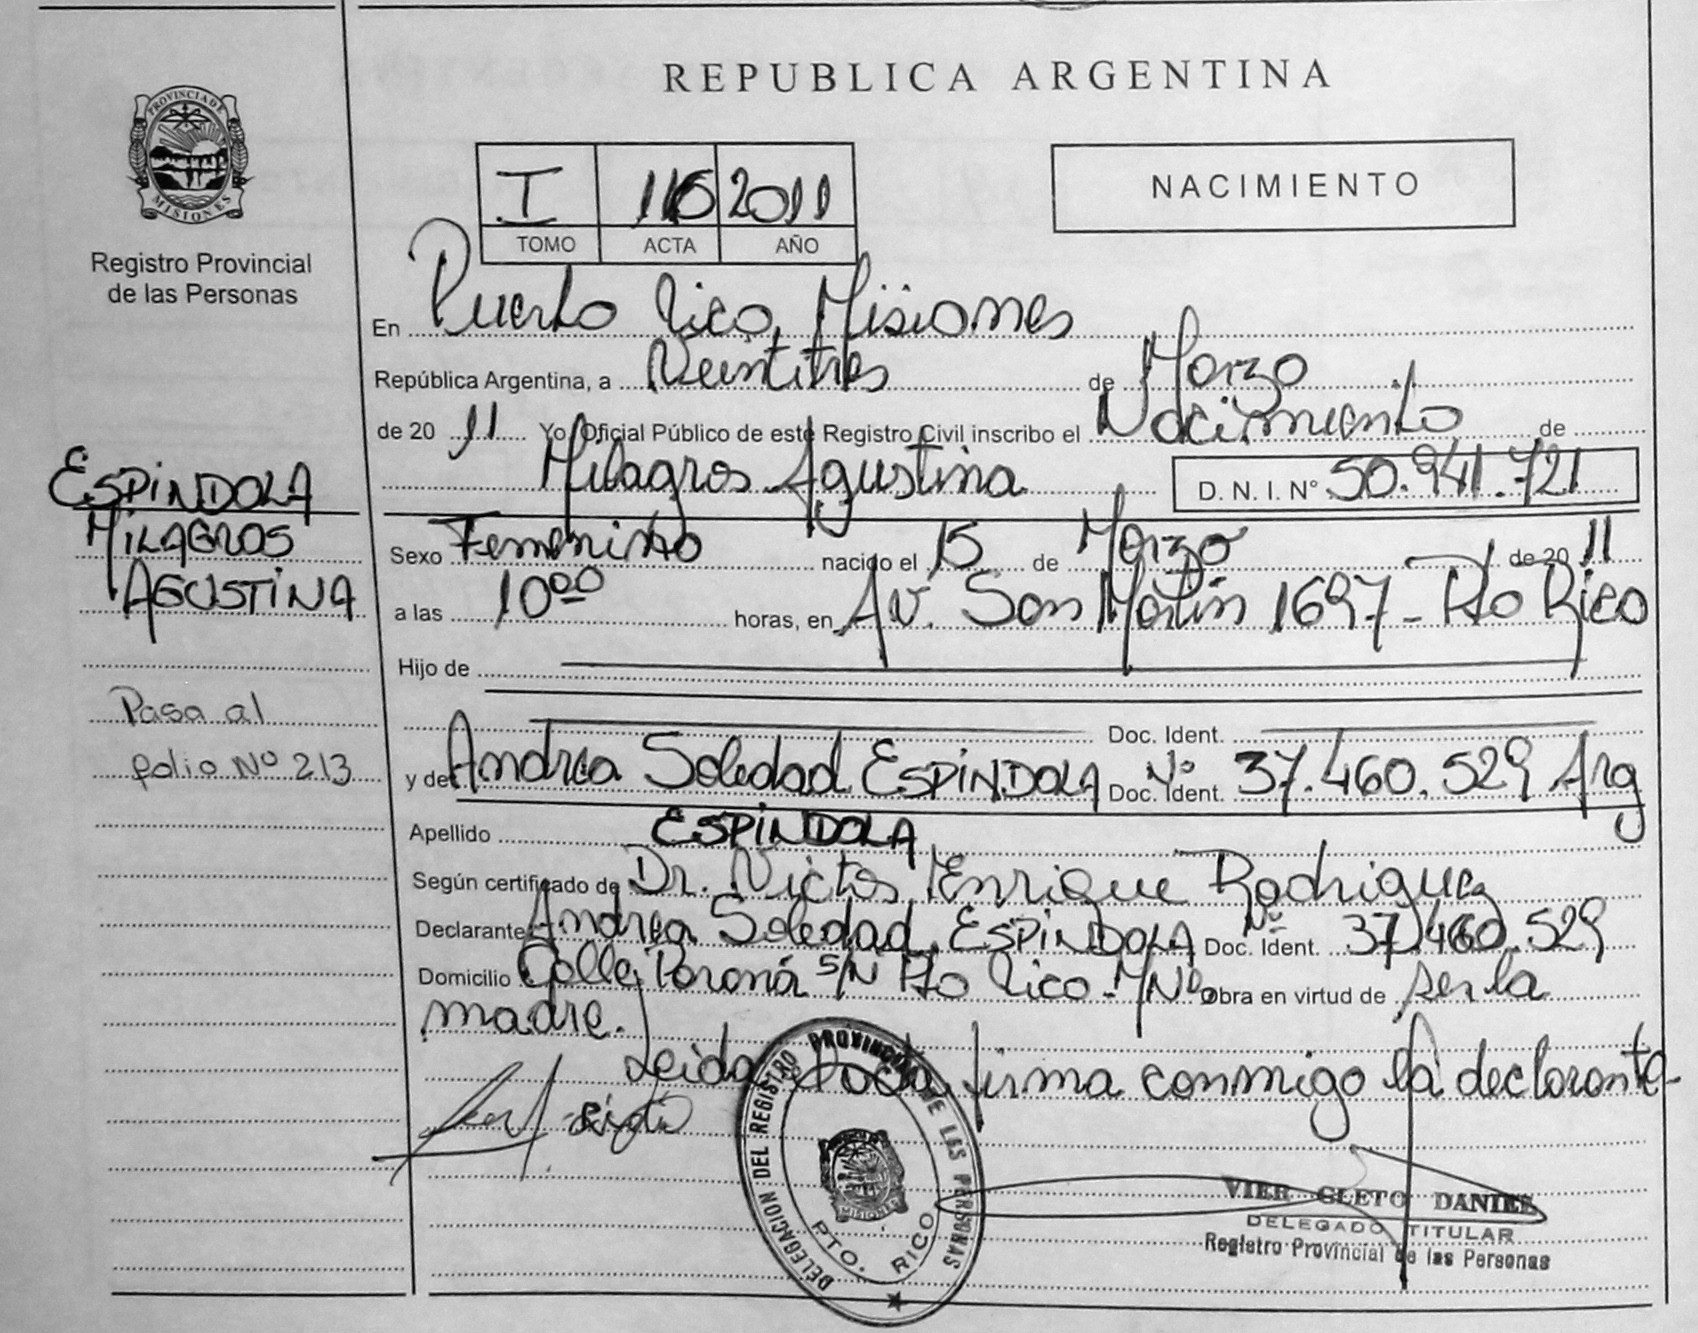 REPUBLICA ARGENTINA
PROVINCIA DE
MISIONES
Registro Provincial
de las Personas
I 116 2011
TOMO ACTA AÑO
NACIMIENTO
En Puerto Rico, Misiones
República Argentina, a Veintitres de Marzo
de 20 11 Yo, Oficial Público de este Registro Civil inscribo el Nacimiento de
Milagros Agustina D. N. I. N° 50.941.721
ESPINDOLA
MILAGROS
AGUSTINA
Sexo Femenino nacido el 15 de Marzo de 20 11
a las 10⁰⁰ horas, en Av. San Martín 1697 - Pto Rico
Hijo de
Doc. Ident.
Pasa al
folio Nº 213
y de Andrea Soledad ESPINDOLA Doc. Ident. Nº 37.460.529 Arg
Apellido ESPINDOLA
Según certificado de Dr. Victor Enrique Rodriguez
Declarante Andrea Soledad ESPINDOLA Doc. Ident. Nº 37.460.529
Domicilio Calle Paraná s/N Pto Rico - Mnes Obra en virtud de ser la
madre.
Leida firma conmigo la declarante
DELEGACION DEL REGISTRO PROVINCIAL DE LAS PERSONAS
MISIONES
PTO. RICO
VIER CLETO DANIEL
DELEGADO TITULAR
Registro Provincial de las Personas